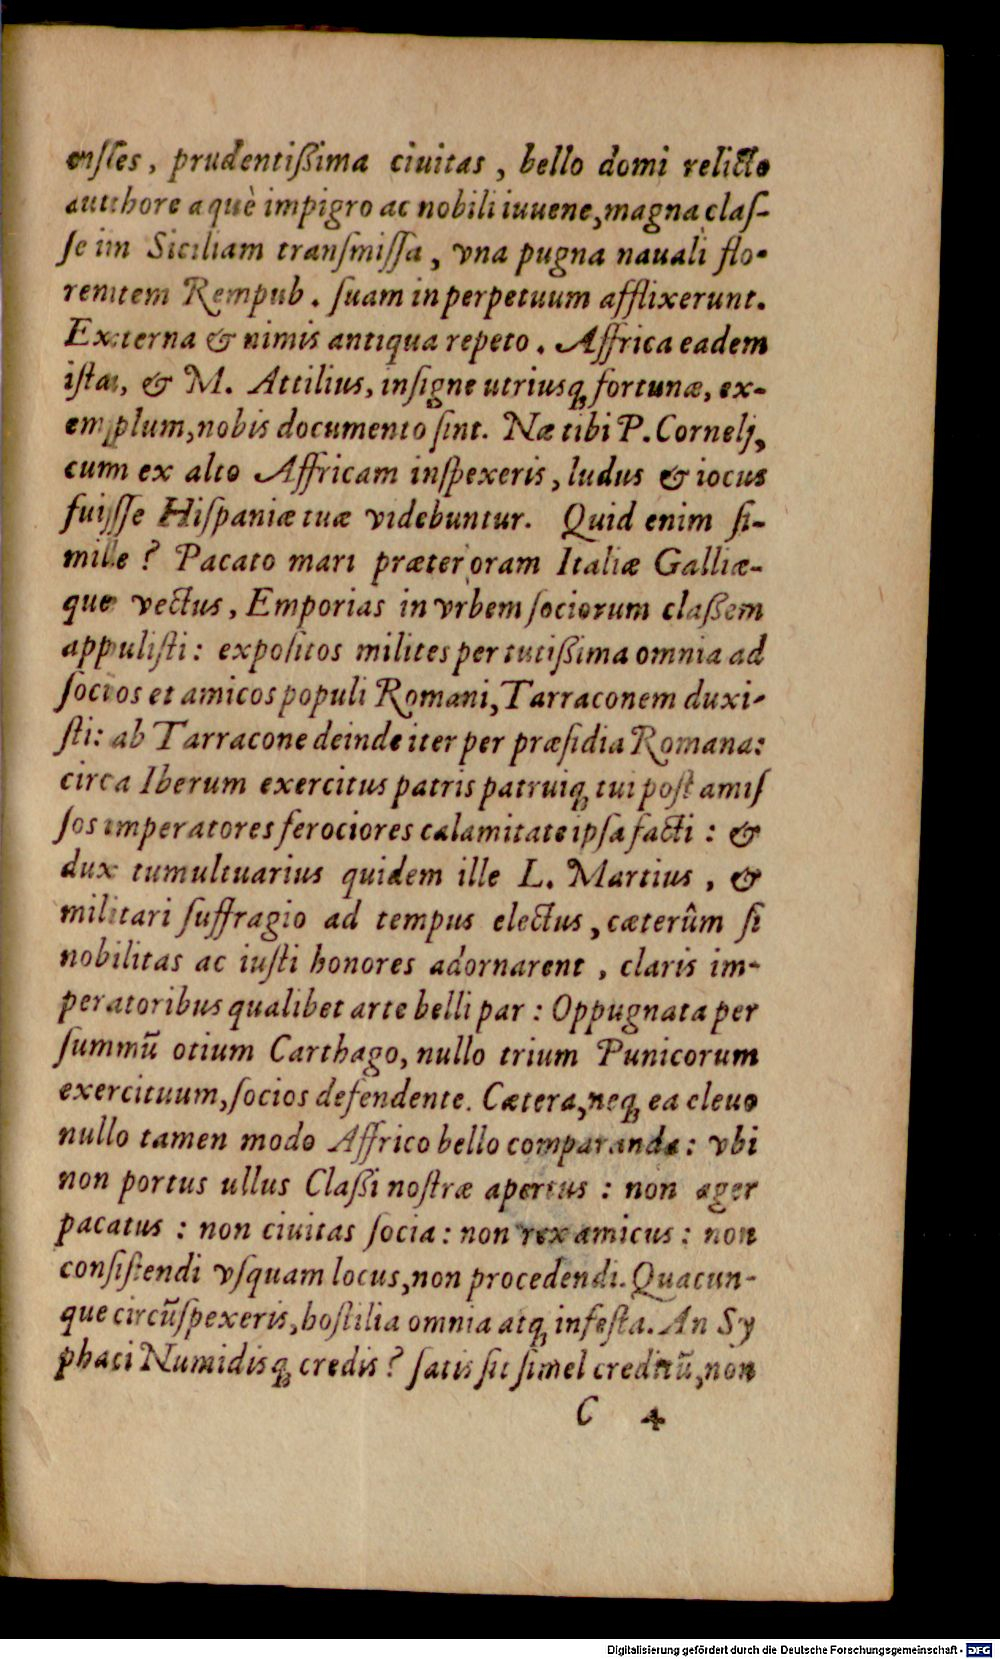 enſes, prudentiſſima ciuitas, bello domi relicto
authore æquè impigro ac nobili iuuene, magna claſ-
ſe in Siciliam tranſmiſſa, vna pugna nauali flo-
rentem Rempub. ſuam in perpetuum afflixerunt.
Externa & nimis antiqua repeto. Affrica eadem
iſta, & M. Attilius, inſigne utriusq; fortunæ, ex-
emplum, nobis documento ſint. Næ tibi P. Cornelj,
cum ex alto Affricam inſpexeris, ludus & iocus
fuiſſe Hiſpaniæ tuæ videbuntur. Quid enim ſi-
mile? Pacato mari præter oram Italiæ Galliæ-
que vectus, Emporias in vrbem ſociorum claßem
appuliſti: expoſitos milites per tutißima omnia ad
ſocios et amicos populi Romani, Tarraconem duxi-
ſti: ab Tarracone deinde iter per præſidia Romana:
circa Iberum exercitus patris patruiq; tui poſt amiſ
ſos imperatores ferociores calamitate ipſa facti: &
dux tumultuarius quidem ille L. Martius, &
militari ſuffragio ad tempus electus, cæterûm ſi
nobilitas ac iuſti honores adornarent, claris im-
peratoribus qualibet arte belli par: Oppugnata per
ſummū otium Carthago, nullo trium Punicorum
exercituum, ſocios defendente. Cætera, neq; ea eleuo
nullo tamen modo Affrico bello comparanda: vbi
non portus ullus Claßi noſtræ apertus: non ager
pacatus: non ciuitas ſocia: non rex amicus: non
conſiſtendi vſquam locus, non procedendi. Quacun-
que circūſpexeris, hoſtilia omnia atq; infeſta. An Sy
phaci Numidisq; credis? ſatis ſit ſimel creditū, non
C 4
Digitalisierung gefördert durch die Deutsche Forschungsgemeinschaft - DFG